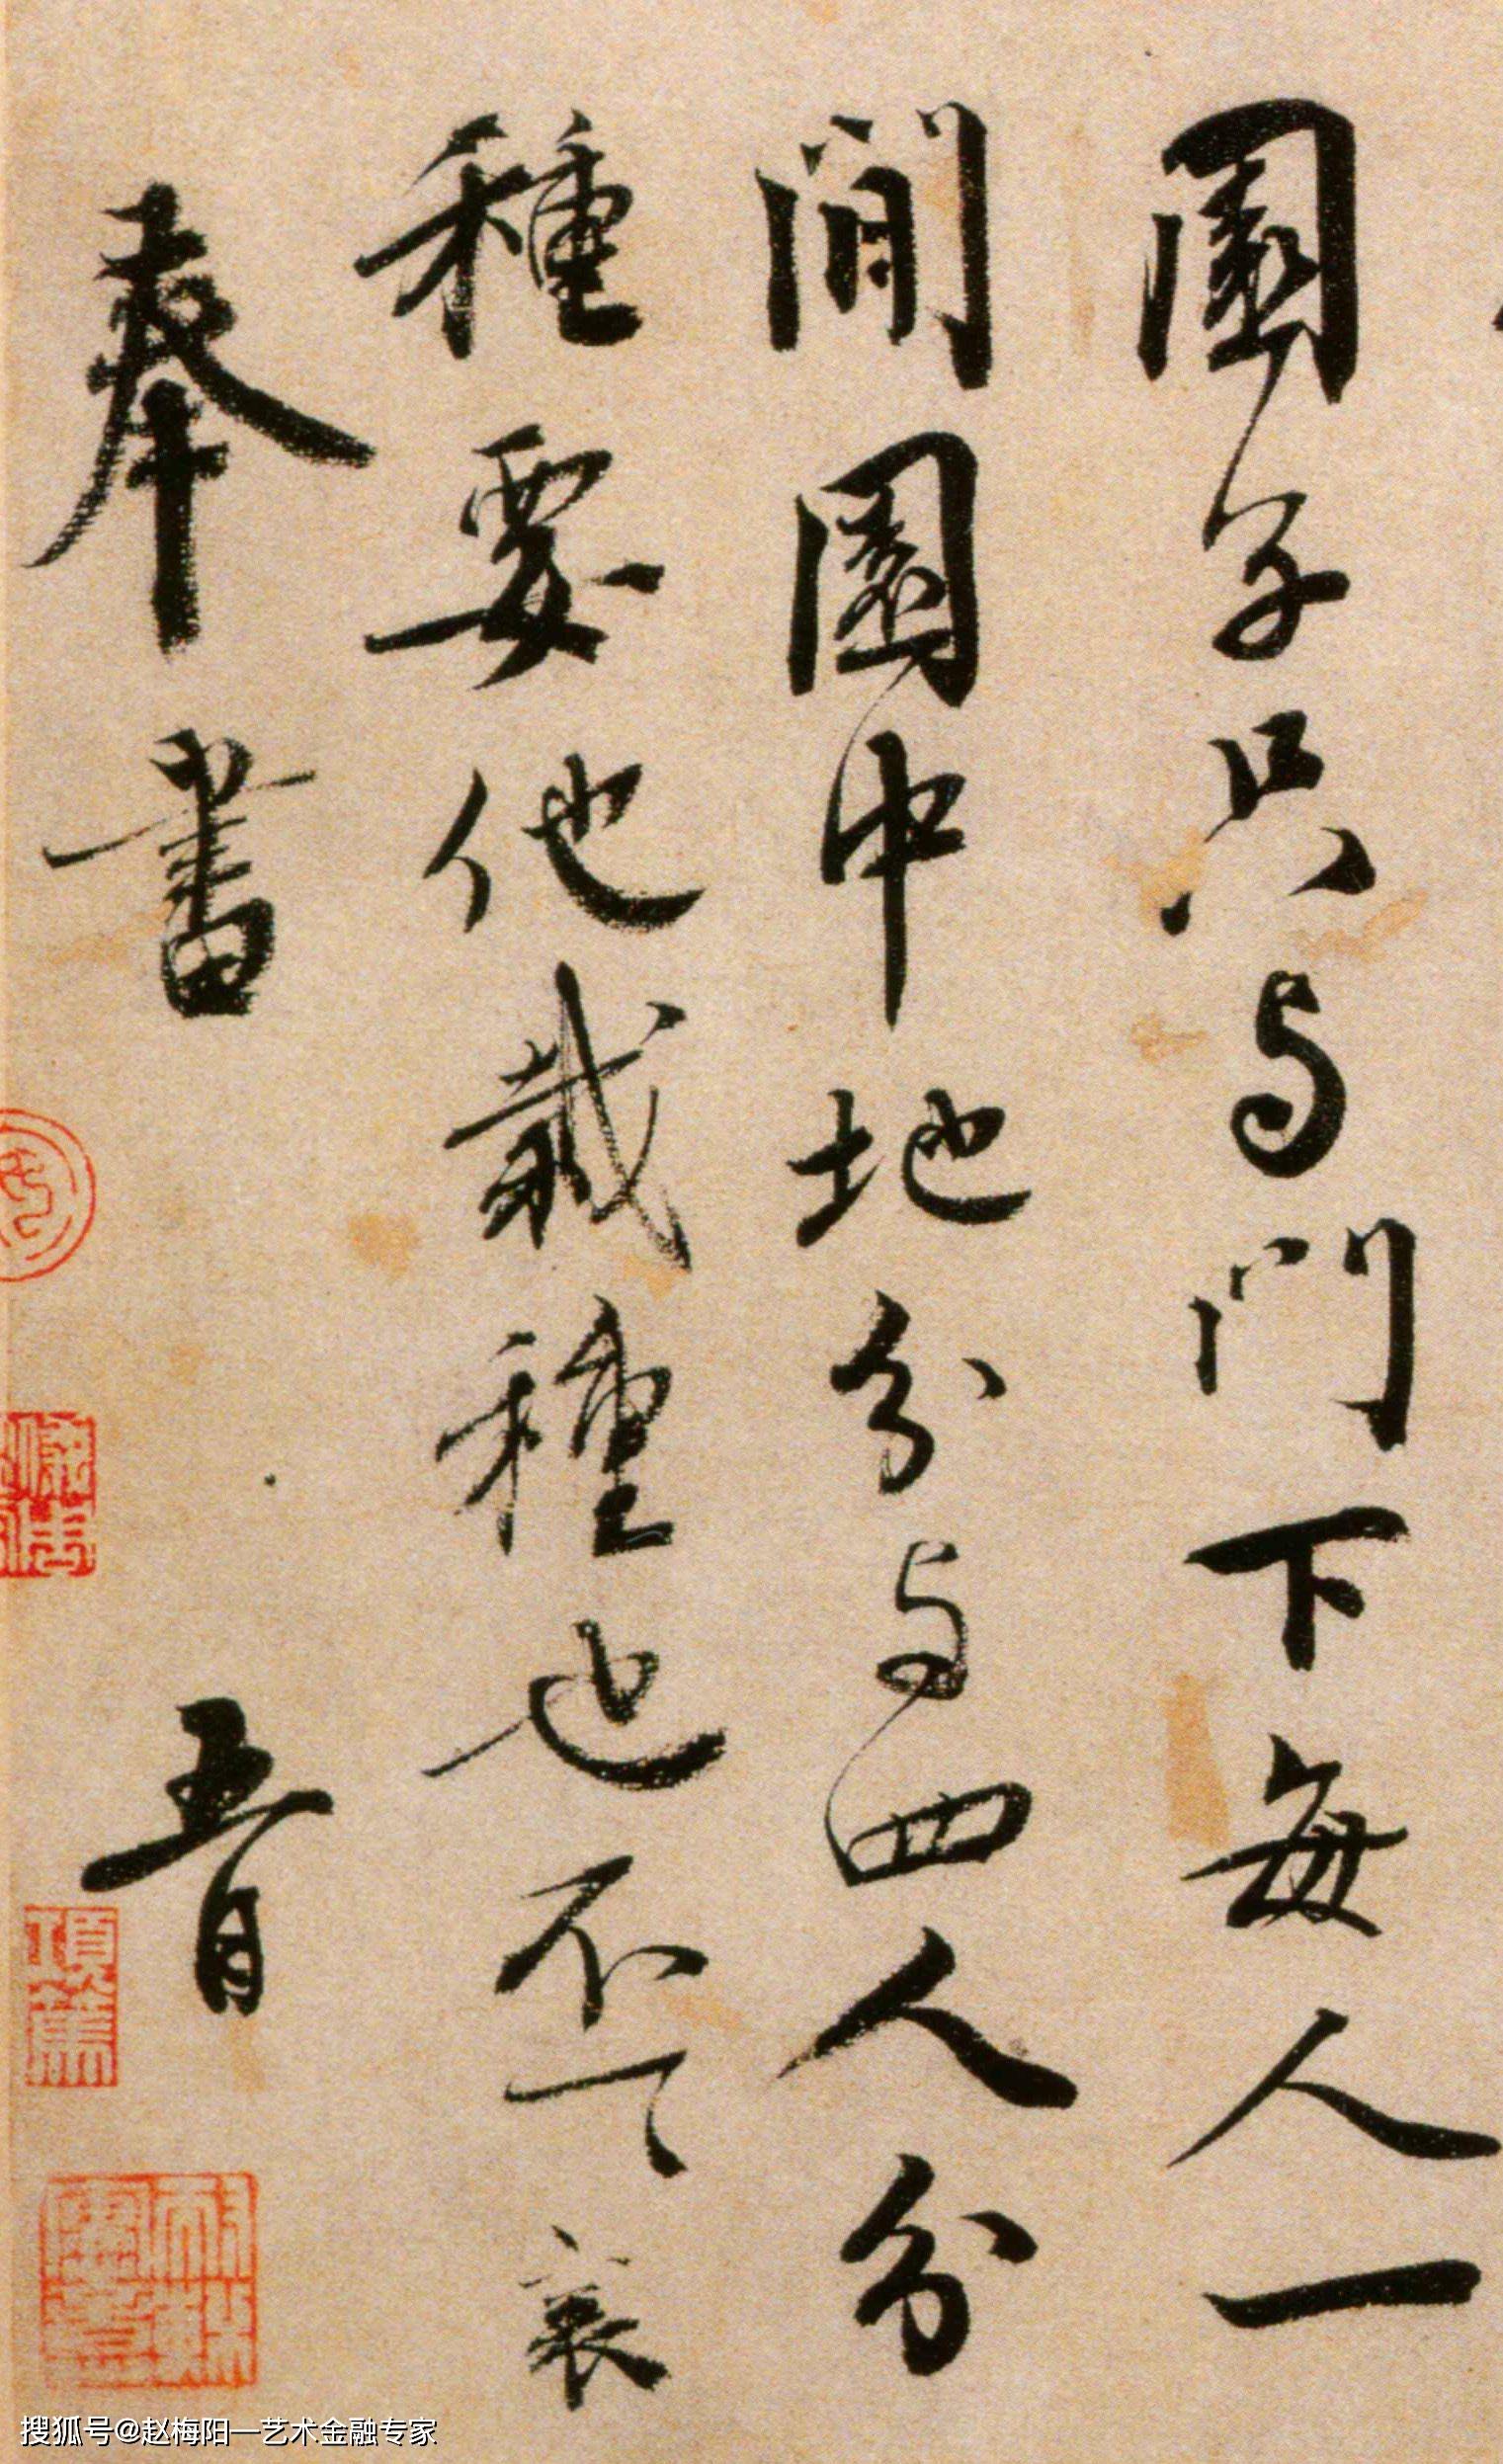 園子只与門下每人一
間園中地分与四人分
種要他栽種也不一一 襄
奉書
搜狐号@赵梅阳—艺术金融专家